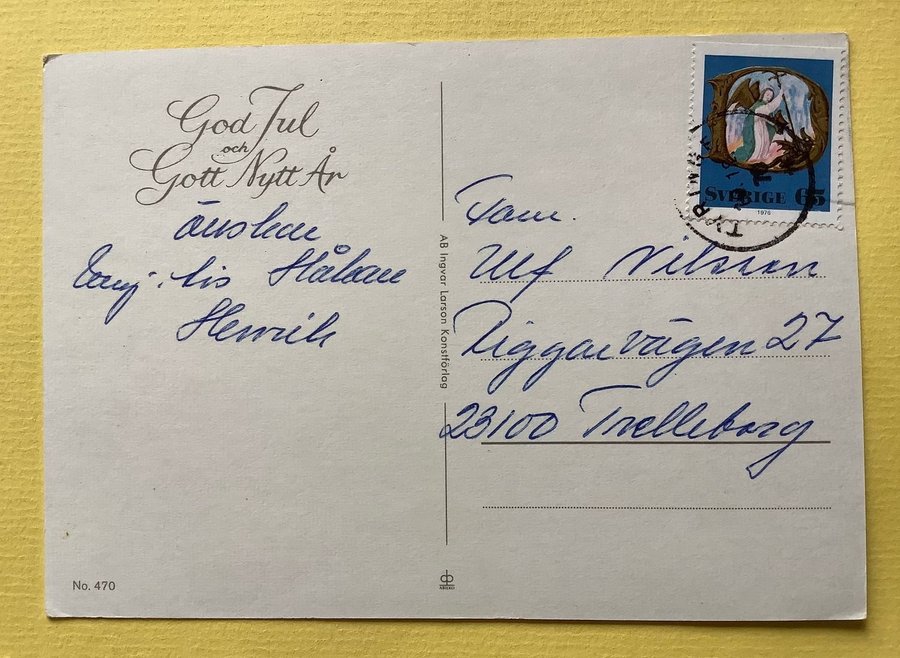 God Jul
och
Gott Nytt År
önskar
Lis Håkan
Henrik
No. 470
AB Ingvar Larson Konstförlag
SVERIGE 65
1976
TYRINGE
Fam.
Ulf Nilsson
Riggarvägen 27
23100 Trelleborg